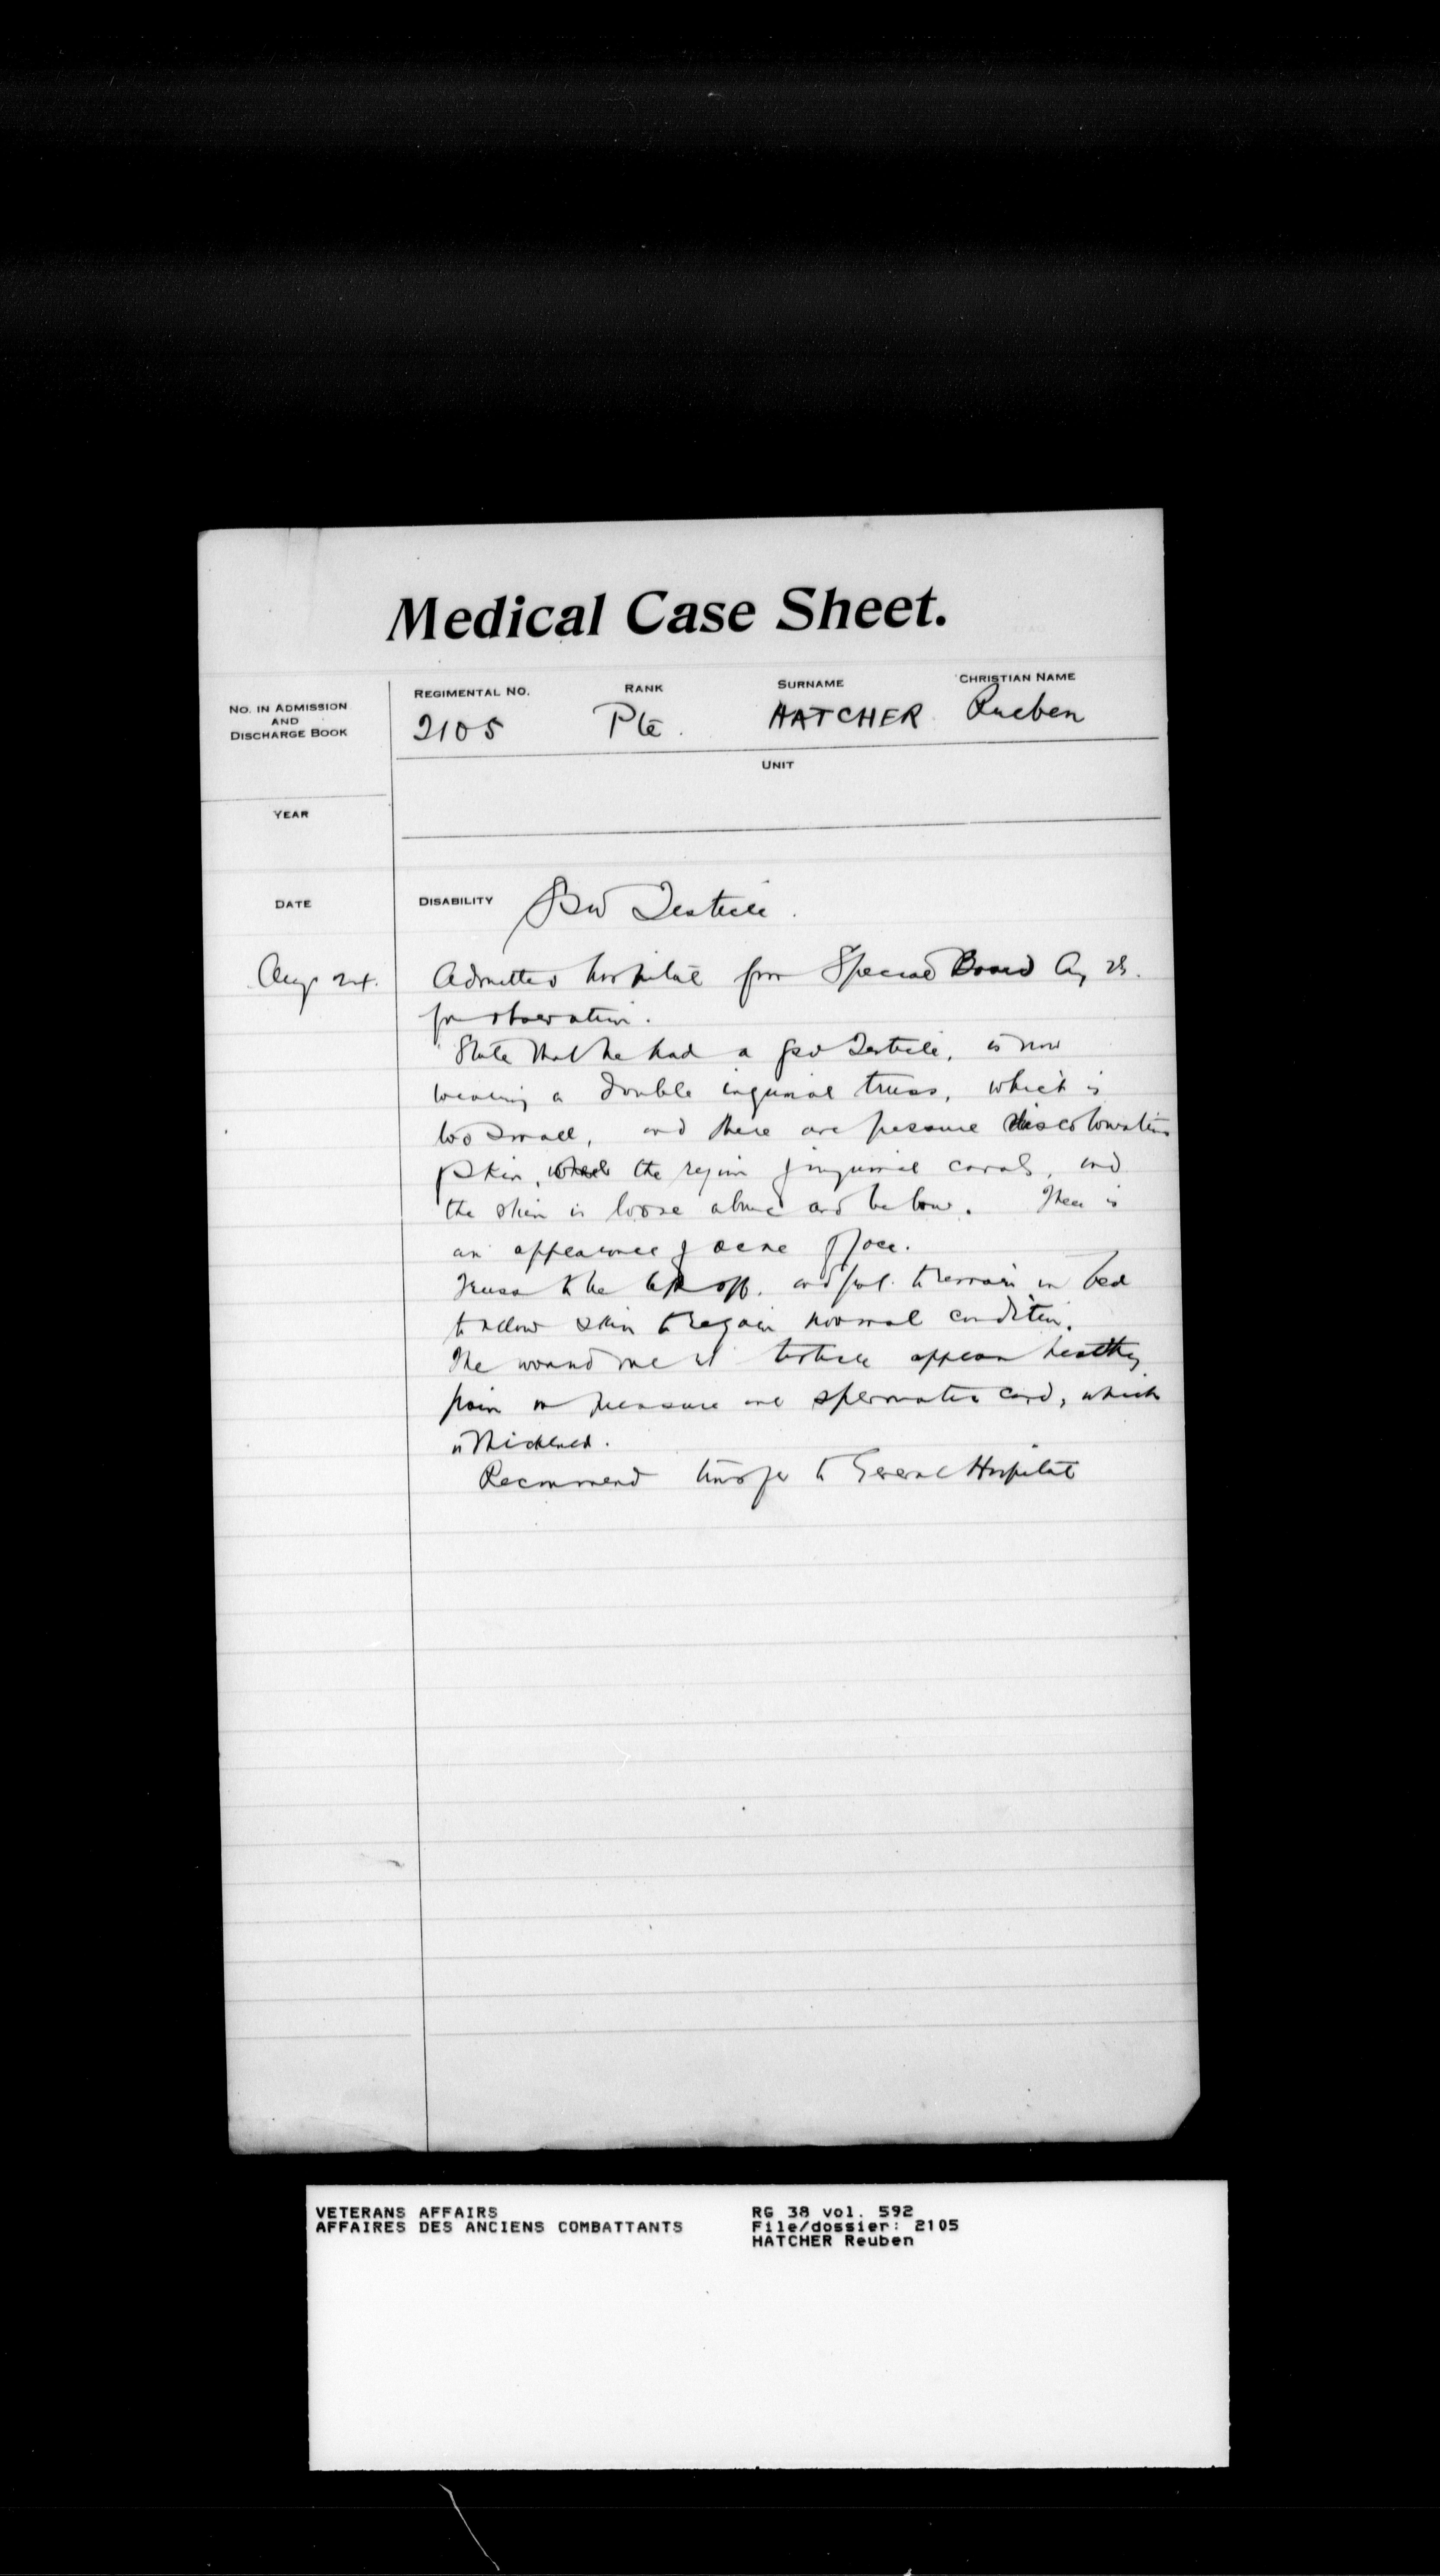 Medical Case Sheet.
NO. IN ADMISSION AND DISCHARGE BOOK
REGIMENTAL NO. RANK SURNAME CHRISTIAN NAME
2105 Pte. HATCHER Rueben
UNIT
YEAR
DATE DISABILITY GSW Testicle.
Aug 24. Admitted hospital from Special Board Aug
for observation.
State that he had a gsw Testicle, is now
wearing a double inguinal truss, which is
too small, and there are pressure discolourations
skin, the region of inguinal canals, and
the skin is loose above and below. There is
an appearance of acne of face.
Truss to be left off. and to remain in bed
to allow skin to regain normal condition.
The wound testicle appear healthy
pain on pressure over spermatic cord, which
is thickened.
Recommend transfer to General Hospital
VETERANS AFFAIRS RG 38 vol. 592
AFFAIRES DES ANCIENS COMBATTANTS File/dossier: 2105
HATCHER Reuben